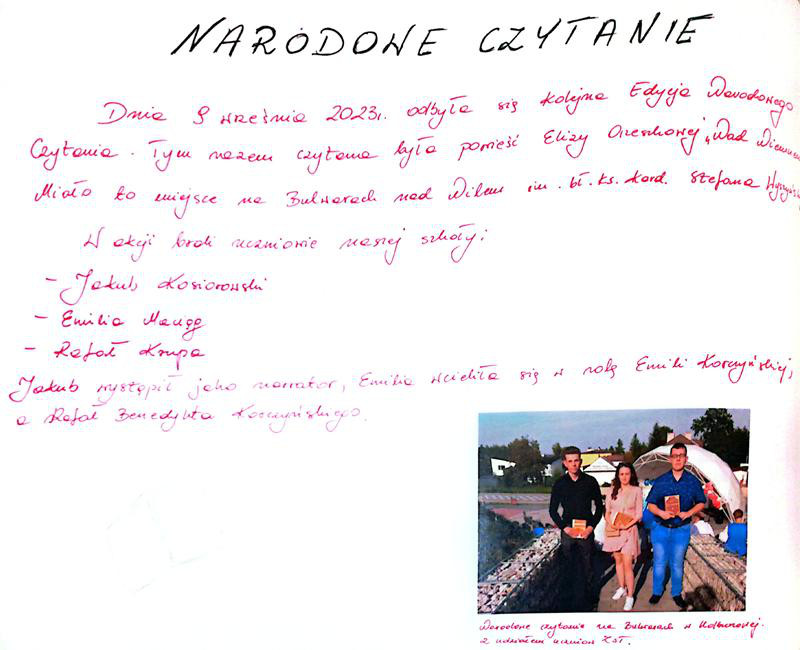 NARODOWE CZYTANIE
Dnia 9 września 2023r. odbyła się kolejna Edycja Narodowego
Czytania. Tym razem czytana była powieść Elizy Orzeszkowej „Nad Niemnem
Miało to miejsce na Bulwarach nad Nilem im. bł. ks. kard. Stefana
W akcji brali uczniowie naszej szkoły:
- Jakub Kosiorowski
- Emilia
- Rafał Krupa
Jakub wystąpił jako narrator, Emilia wcieliła się w rolę Emilii Korczyńskiej,
a Rafał Benedykta Korczyńskiego.
Narodowe czytanie na Bulwarach w Kolbuszowej.
z udziałem uczniów ZST.